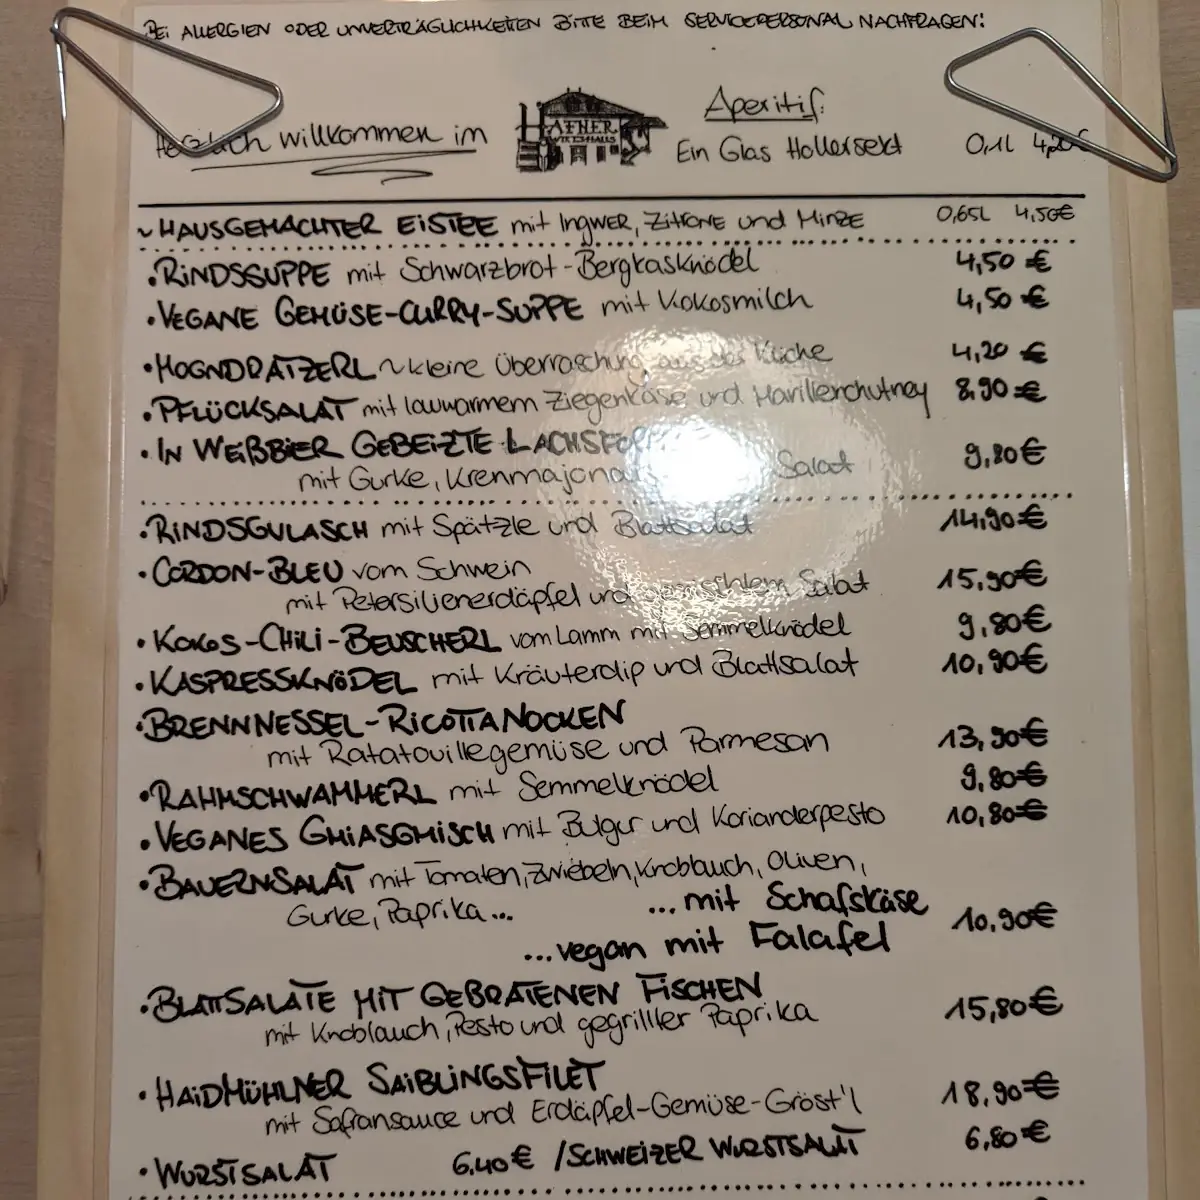 BEI ALLERGIEN ODER UNVERTRÄGLICHKEITEN BITTE BEIM SERVICEPERSONAL NACHFRAGEN!
Herzlich willkommen im
HAFNER
WIRTSHAUS
Aperitif:
Ein Glas Hollersekt 0,1L 4,20€
~ HAUSGEMACHTER EISTEE mit Ingwer, Zitrone und Minze 0,65L 4,50€
• RINDSSUPPE mit Schwarzbrot-Bergkasknödel 4,50 €
• VEGANE GEMÜSE-CURRY-SUPPE mit Kokosmilch 4,50 €
• HOGNDRATZERL ~ kleine Überraschung aus der Küche 4,20 €
• PFLÜCKSALAT mit lauwarmem Ziegenkäse und Marillenchutney 8,90 €
• IN WEIßBIER GEBEIZTE
mit Gurke, Salat 9,80€
• RINDSGULASCH mit Spätzle und Blattsalat 14,90€
• CORDON-BLEU vom Schwein
mit Petersilienerdäpfel und gemischtem Salat 15,90€
• KOKOS-CHILI-BEUSCHERL vom Lamm mit Semmelknödel 9,80€
• KASPRESSKNÖDEL mit Kräuterdip und Blattsalat 10,90€
• BRENNNESSEL-RICOTTANOCKEN
mit Ratatouillegemüse und Parmesan 13,90€
• RAHMSCHWAMMERL mit Semmelknödel 9,80€
• VEGANES GHIASGHISCH mit Bulgur und Korianderpesto 10,80€
• BAUERNSALAT mit Tomaten, Zwiebeln, Knoblauch, Oliven,
Gurke, Paprika... ... mit Schafskäse
...vegan mit Falafel 10,90€
• BLATTSALATE MIT GEBRATENEN FISCHEN
mit Knoblauch, Pesto und gegrillter Paprika 15,80€
• HAIDMÜHLNER SAIBLINGSFILET
mit Safransauce und Erdäpfel-Gemüse-Gröst'l 18,90€
• WURSTSALAT 6,40€ / SCHWEIZER WURSTSALAT 6,80€